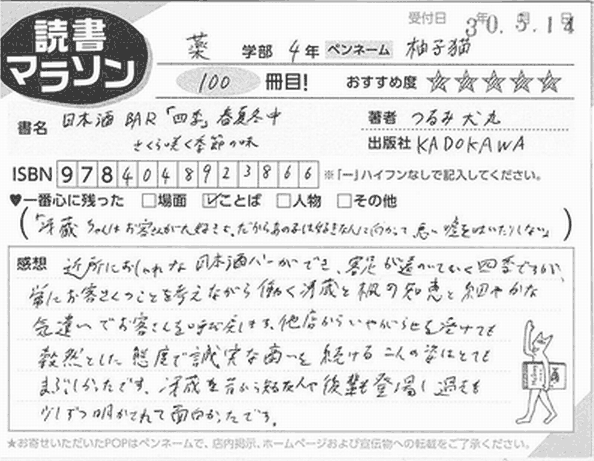 読書
マラソン
受付日 30年5月14日
薬 学部 4年 ペンネーム 柚子猫
100 冊目! おすすめ度 ☆☆☆☆☆
書名 日本酒BAR「四季」春夏冬中
さくら咲く季節の味
著者 つるみ犬丸
出版社 KADOKAWA
ISBN 9784048923866 ※「ー」ハイフンなしで記入してください。
♥一番心に残った □場面 ☑ことば □人物 □その他
(「冴蔵ちゃんはお客さんが大好きよ、だからあの子は好きな人に向かって、悪い嘘を吐いたりしない」)
感想 近所におしゃれな日本酒バーができ、客足が遠のいていく四季ですが、
常にお客さんのことを考えながら働く冴蔵と楓の知恵と細やかな
気遣いでお客さんを呼び戻します。他店からいやがらせを受けても
毅然とした態度で誠実な商いを続ける二人の姿はとても
まぶしかったです。冴蔵を昔から知る友人や後輩も登場し過去も
少しずつ明かされて面白かったです。
★お寄せいただいたPOPはペンネームで、店内掲示、ホームページおよび宣伝物への転載をご了承ください。